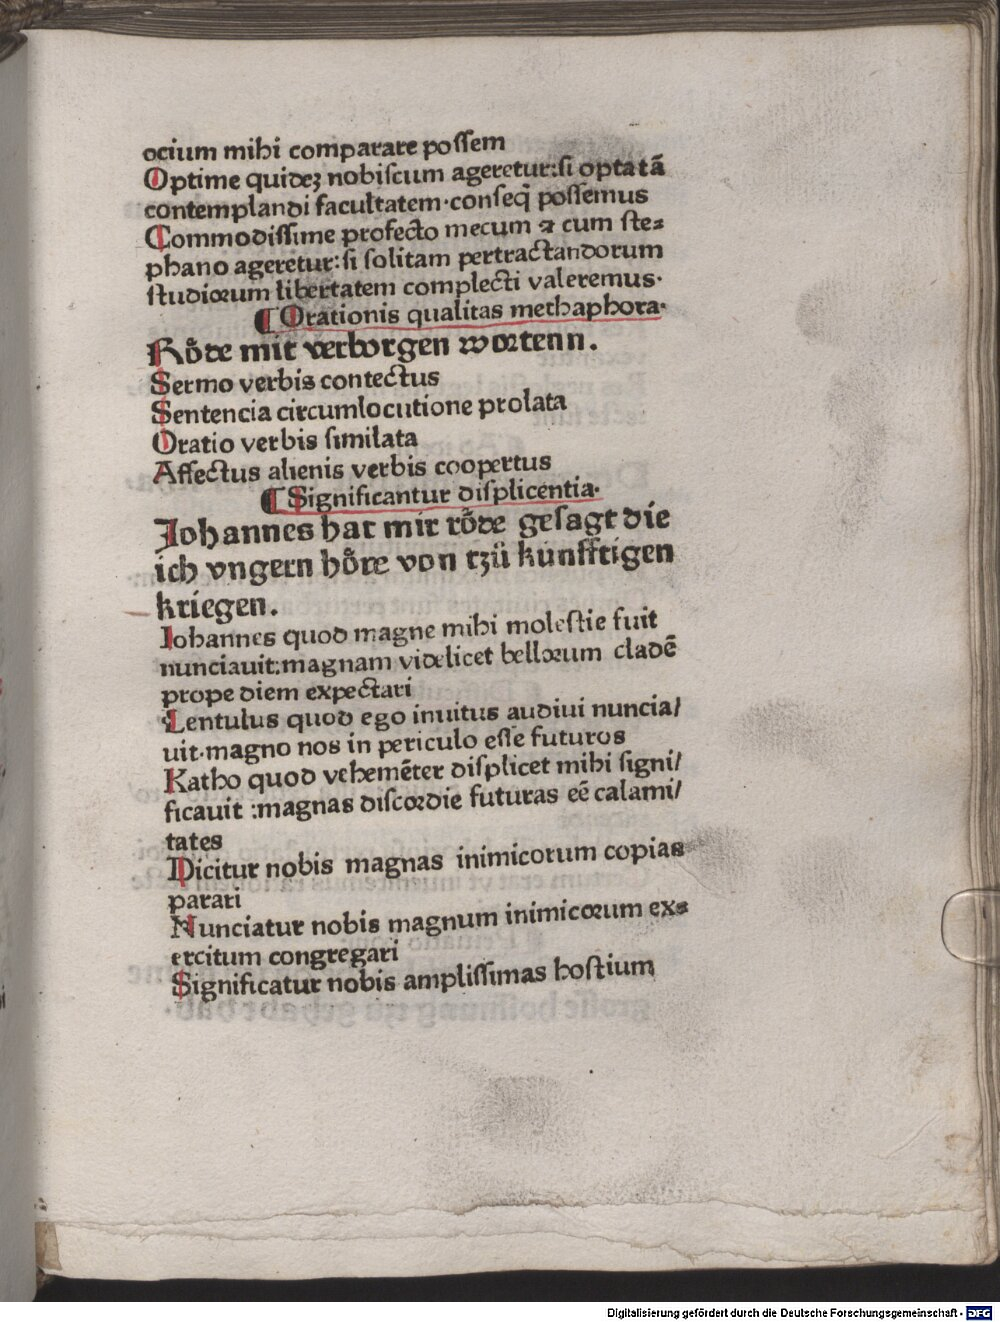 ocium mihi comparare possem
Optime quideʒ nobiscum ageretur:si optatā
contemplandi facultatem·conseq̄ possemus
Commodissime profecto mecum ⁊ cum ste⸗
phano ageretur:si solitam pertractandorum
studiorum libertatem complecti valeremus·
¶ Orationis qualitas methaphora·
Roͤde mit verborgen wortenn.
Sermo verbis contectus
Sentencia circumlocutione prolata
Oratio verbis similata
Affectus alienis verbis coopertus
¶ Significantur displicentia·
Johannes hat mir roͤde gesagt die
ich vngern hoͤre von tzü künfftigen
kriegen.
Iohannes quod magne mihi molestie fuit
nunciauit:magnam videlicet bellorum cladē
prope diem expectari
Lentulus quod ego inuitus audiui nuncia/
uit·magno nos in periculo esse futuros
Katho quod vehemēter displicet mihi signi/
ficauit :magnas discordie futuras eē calami/
tates
Dicitur nobis magnas inimicorum copias
parari
Nunciatur nobis magnum inimicorum ex⸗
ercitum congregari
Significatur nobis amplissimas hostium
Digitalisierung gefördert durch die Deutsche Forschungsgemeinschaft - DFG